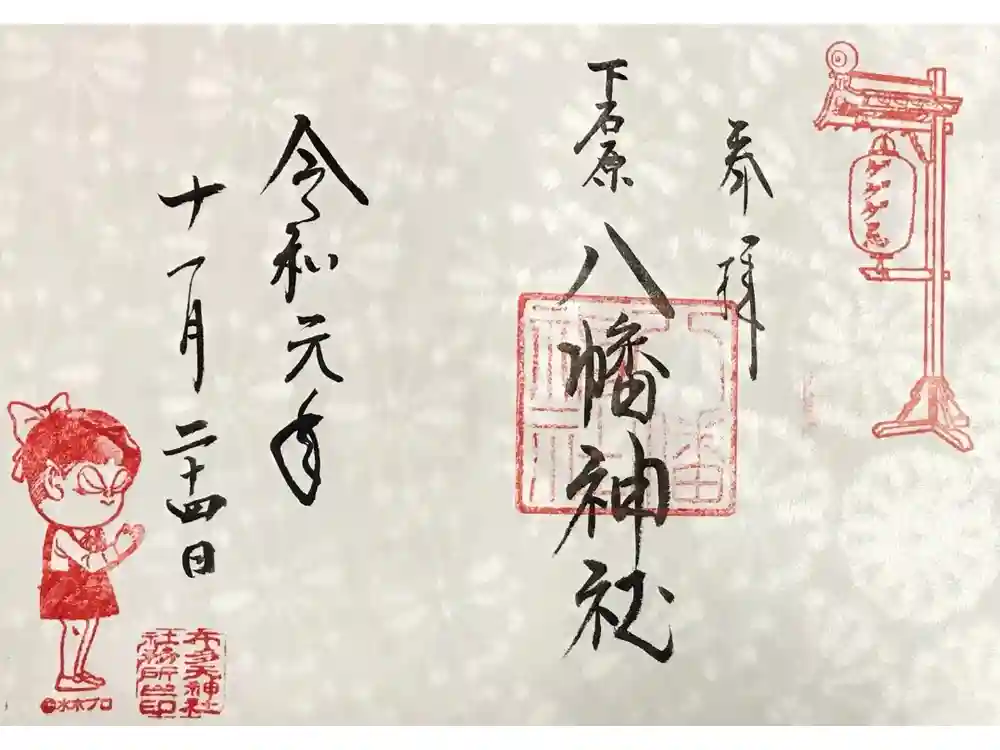 奉拝
下石原
八幡神社
令和元年
十一月二十四日
ゲゲゲ忌
布多天神社
社務所之印
©水木プロ